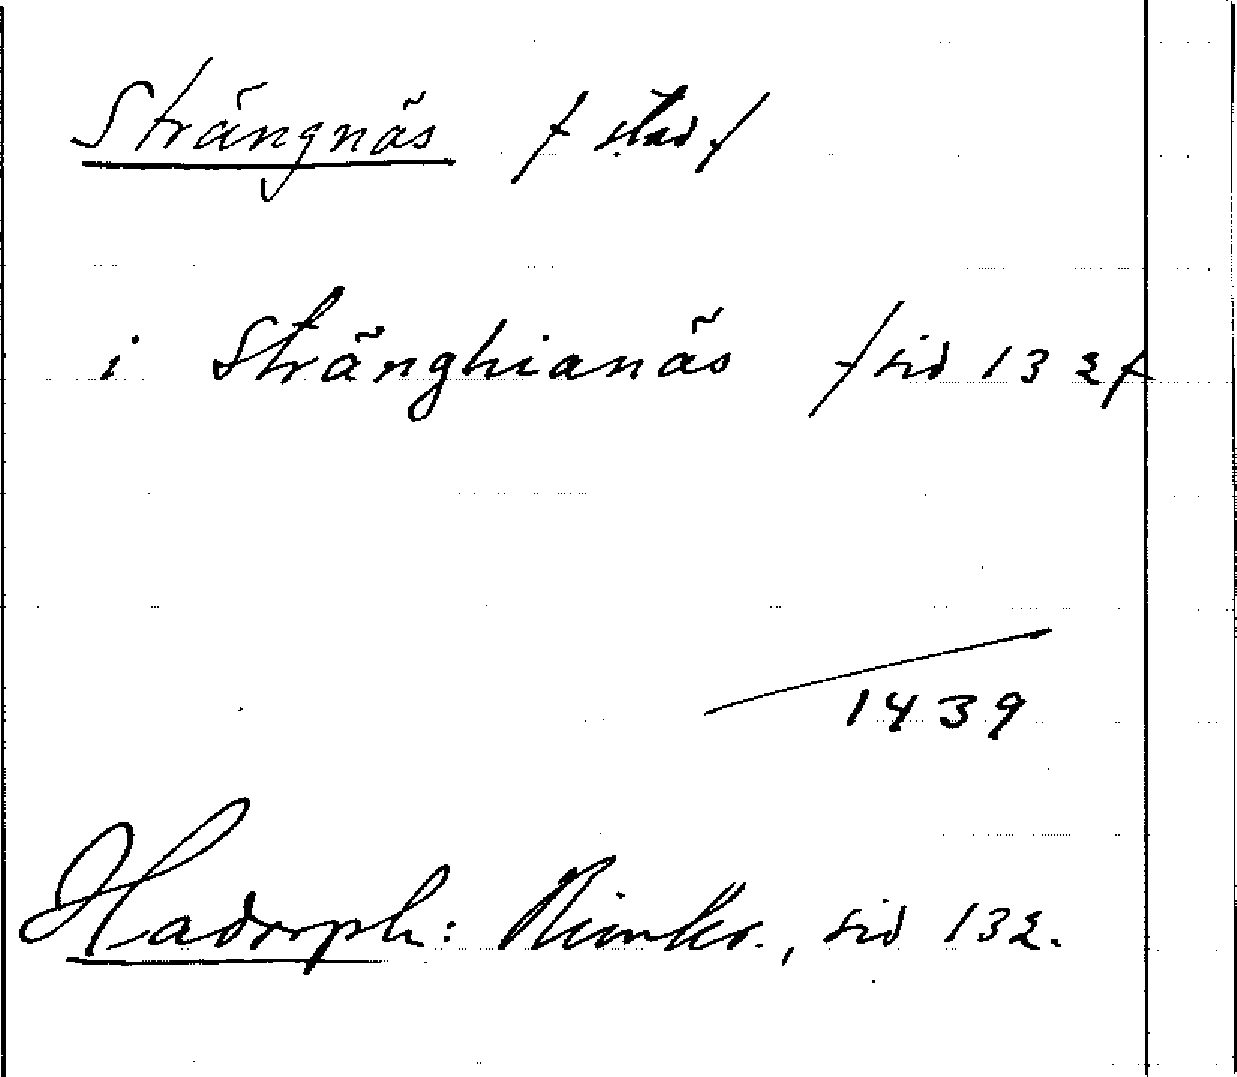 Strängnäs /stad/
i Stränghianäs /sid 132/
1439
Hadorph: Rimkr., sid 132.